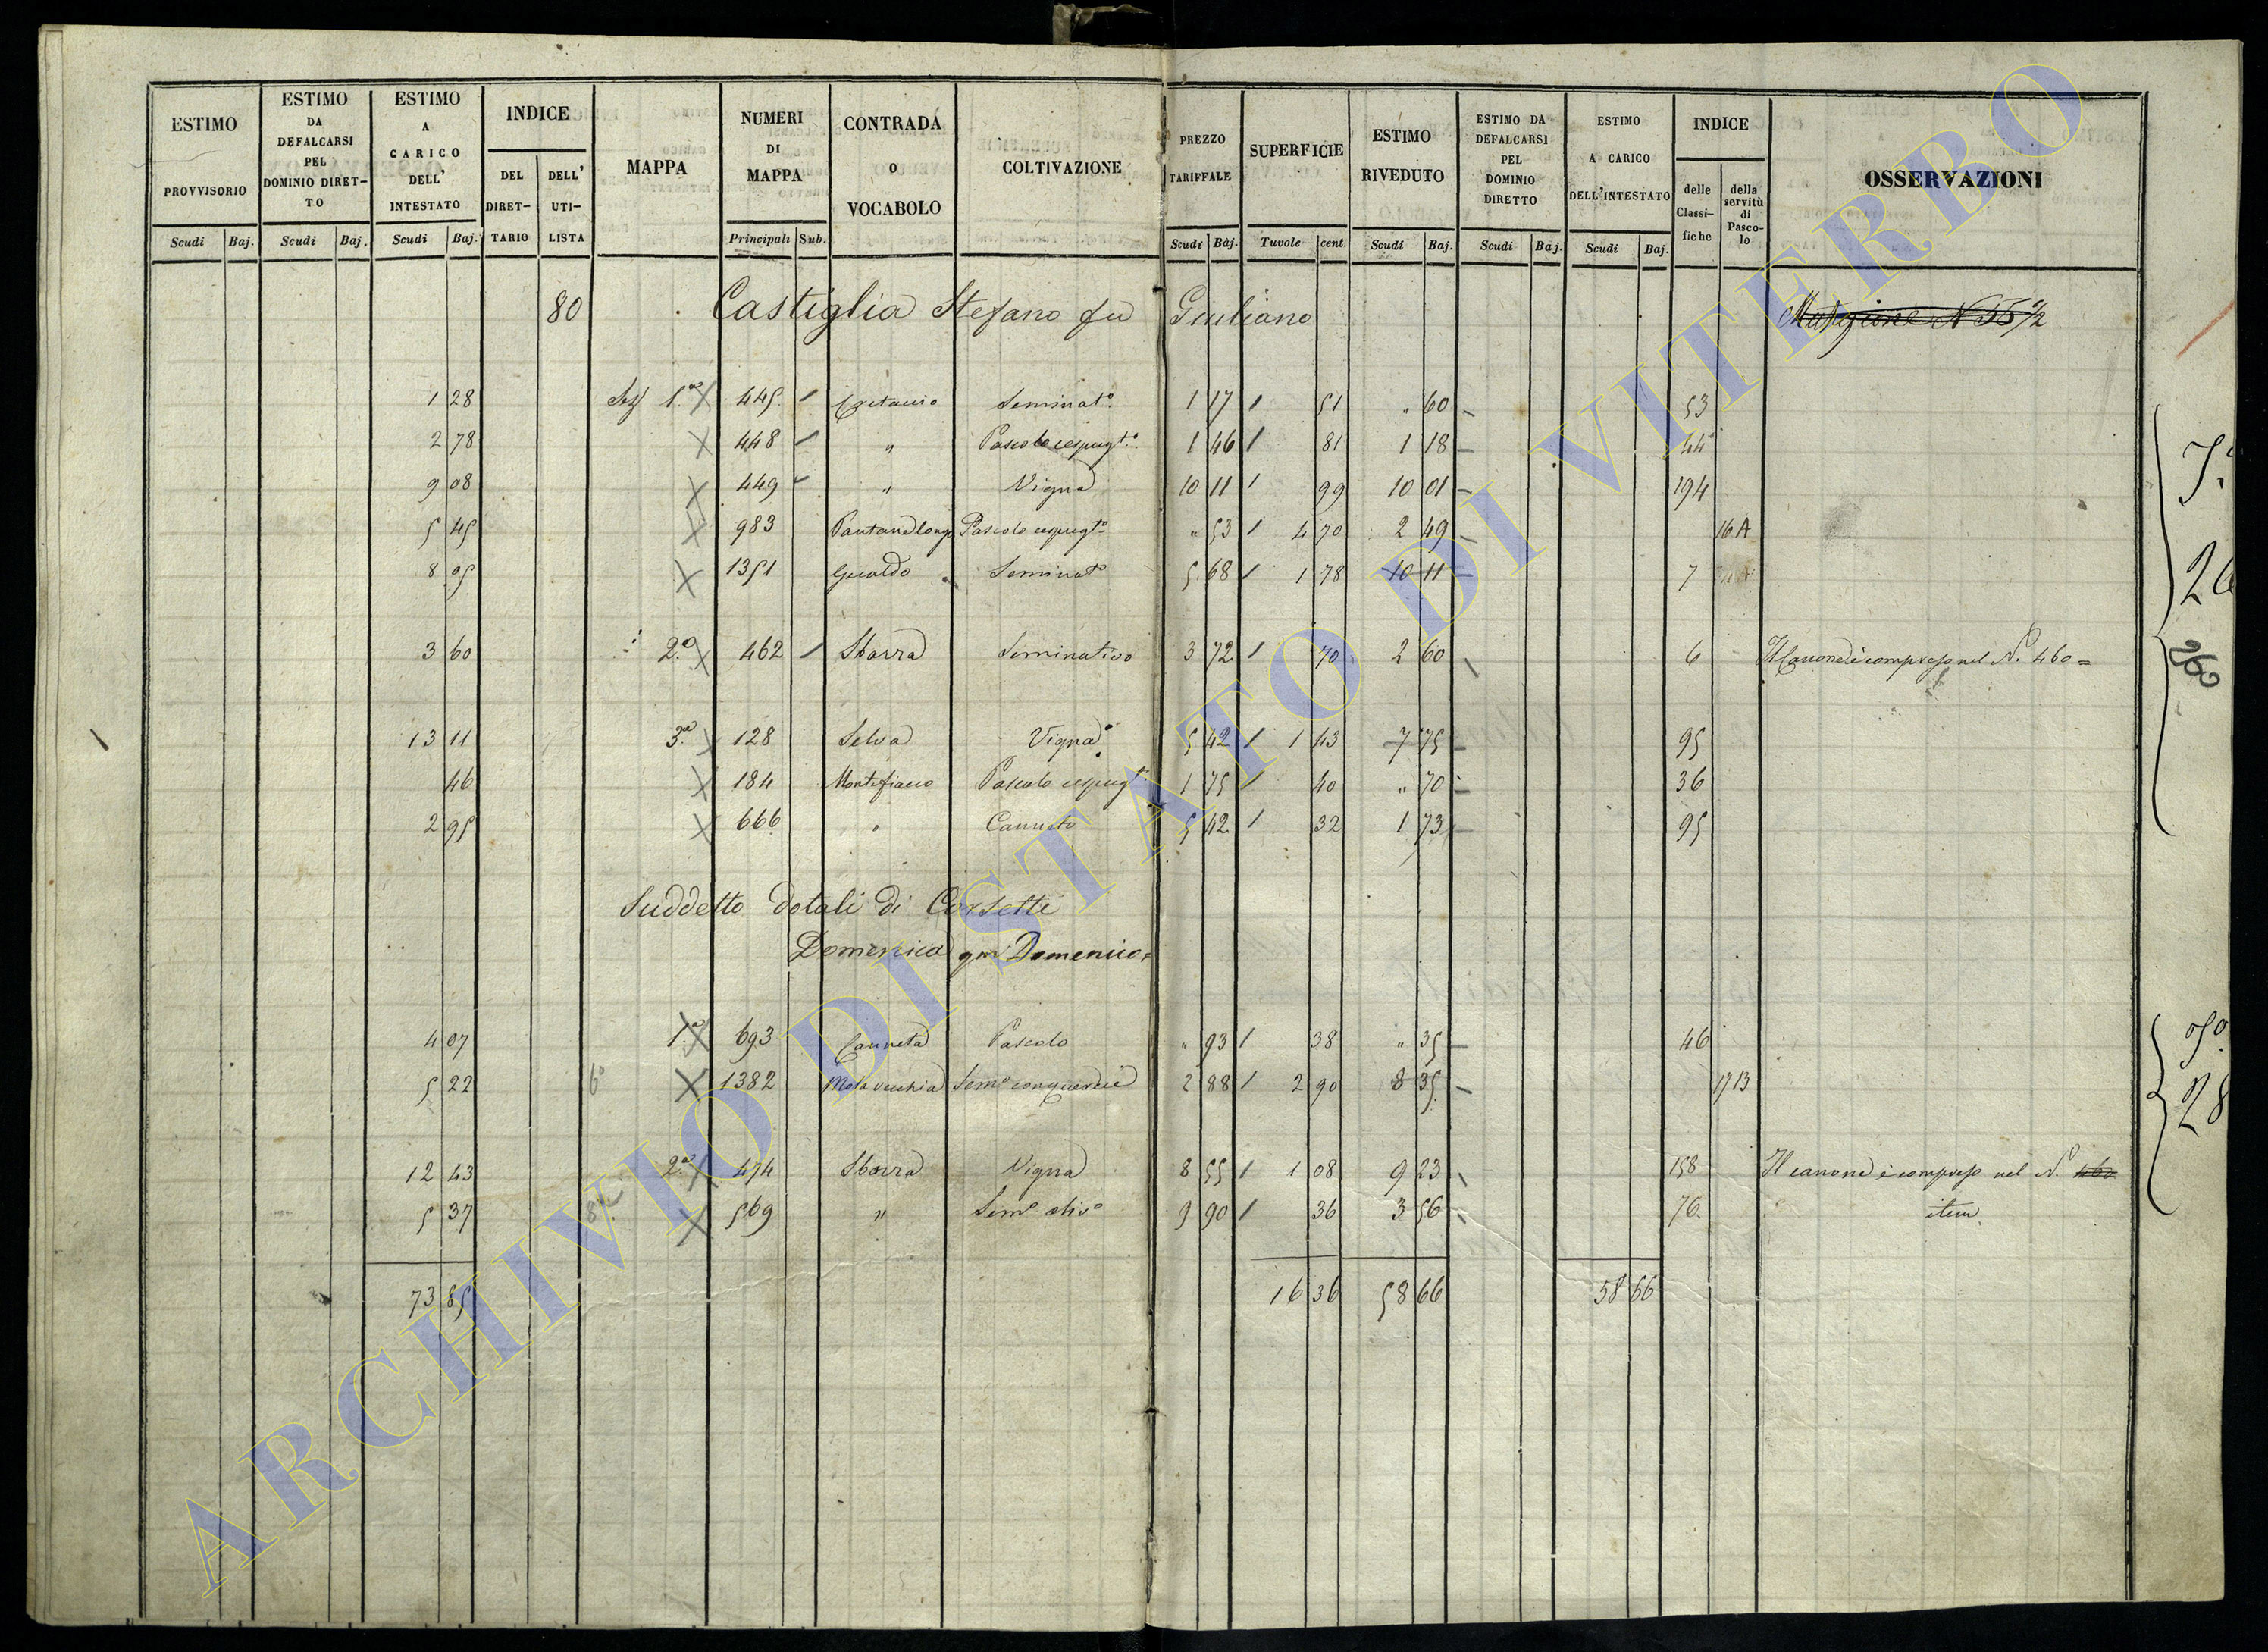 ESTIMO PROVVISORIO | ESTIMO DA DEFALCARSI PEL DOMINIO DIRET-TO | ESTIMO A CARICO DELL' INTESTATO | INDICE DEL DIRET-TARIO | DELL' UTI-LISTA | MAPPA | NUMERI DI MAPPA | CONTRADA O VOCABOLO | COLTIVAZIONE | PREZZO TARIFFALE | SUPERFICIE | ESTIMO RIVEDUTO | ESTIMO DA DEFALCARSI PEL DOMINIO DIRETTO | ESTIMO A CARICO DELL'INTESTATO | INDICE delle Classi-fiche | della servitù di Pasco-lo | OSSERVAZIONI
Scudi | Baj. | Scudi | Baj. | Scudi | Baj. | Principali | Sub. | Scudi | Baj. | Tavole | cent. | Scudi | Baj. | Scudi | Baj. | Scudi | Baj.
80 Castiglia Stefano fu Giuliano N 55 1/2
1 28 Sez 1.a 445 Seminat.o 1 17 51 " 60 53
2 78 448 " Pascolo cespugt.o 1 46 81 1 18 44
9 08 449 " Vigna 10 11 99 10 01 194
5 45 983 Pascolo cespugt.o " 53 4 70 2 49 16 A
8 05 1351 Gualdo Seminat.o 5 68 1 78 10 11 7
3 60 2.a 462 Sbarra Seminativo 3 72 70 2 60 6 Il Canone è compreso nel N. 460 =
13 11 3.a 128 Selva Vigna 5 42 1 43 7 75 95
46 184 Montefiacco Pascolo cespugt. 1 75 40 " 70 36
2 95 666 " Canneto 5 42 32 1 73 95
Suddetto dotali di Corsetti
Domenica qm Domenico =
4 07 1.a 693 Canneta Pascolo " 93 38 " 35 46
5 22 6.o 1382 Mola vecchia Sem.o con quercie 2 88 2 90 8 35 17 B
12 43 2.a 474 Sbarra Vigna 8 55 1 08 9 23 158 Il canone è compreso nel N. 460
5 37 569 " Sem.o oliv.o 9 90 36 3 56 76 item
73 85 16 36 58 66 58 66
260
28
ARCHIVIO DI STATO DI VITERBO